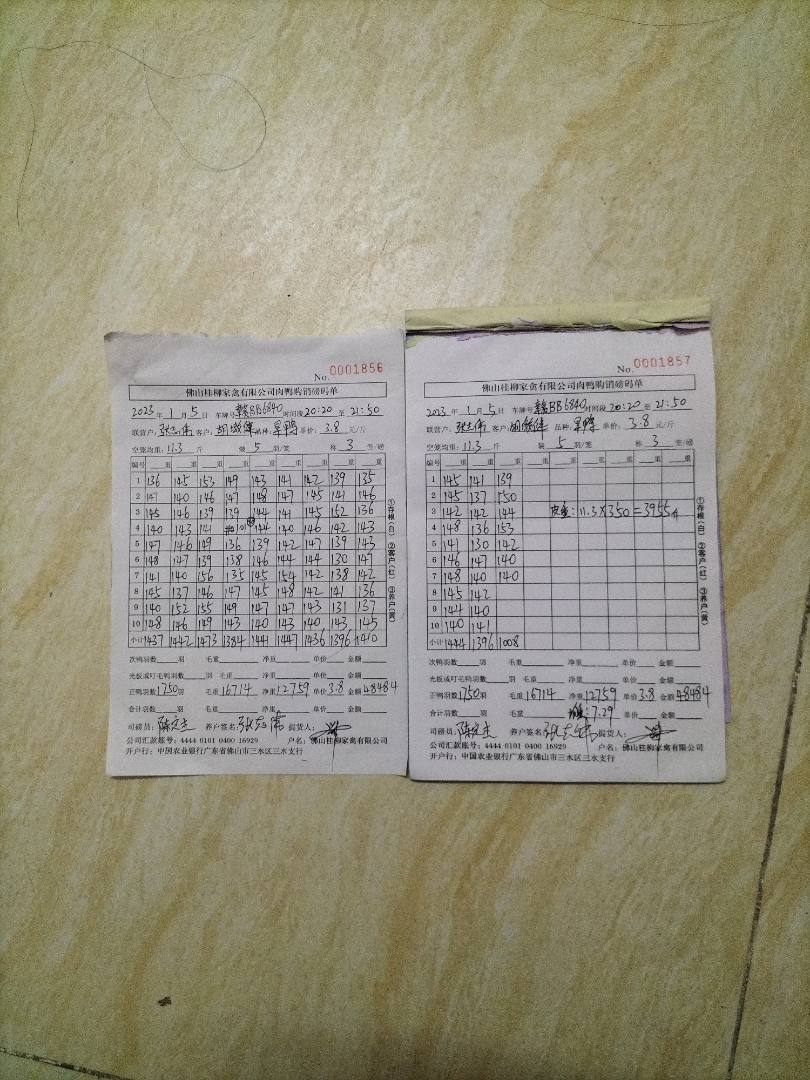 No. 0001856
佛山桂柳家禽有限公司肉鸭购销磅码单
2023年 1月 5日 车牌号 赣BB6840 时间段 20:20 至 21:50
联营户: 张志伟 客户: 品种: 单价: 3.8 元/斤
空笼均重: 11.3 斤 装 5 羽/笼 称 3 笼/磅
编号 重 重 重 重 重 重 重 重 重
1 136 145 153 149 143 141 142 139 135
2 147 140 146 147 148 147 145 141 146
3 145 146 139 139 144 141 145 152 136
4 140 143 141 144 140 146 142 143
5 147 146 149 136 139 142 147 139 143
6 148 147 139 138 146 144 144 130 147
7 141 140 156 135 145 154 142 138 142
8 145 137 146 147 145 148 142 141 136
9 140 152 155 149 147 147 143 131 137
10 148 146 149 143 140 143 140 143 145
小计 1437 1442 1473 1384 1441 1447 1436 1396 1410
①存根(白) ②客户(红) ③养户(黄)
次鸭羽数 羽 毛重 净重 单价 金额
光板或叮毛鸭羽数 羽 毛重 净重 单价 金额
正鸭羽数 1750 羽 毛重 16714 净重 12759 单价 3.8 金额 48484
合计羽数 羽 毛重 净重 单价 金额
司磅员: 养户签名: 张志伟 提货人:
公司汇款账号: 4444 0101 0400 16929 户名: 佛山桂柳家禽有限公司
开户行: 中国农业银行广东省佛山市三水区三水支行
No. 0001857
佛山桂柳家禽有限公司肉鸭购销磅码单
2023年 1月 5日 车牌号 赣BB6840 时间段 20:20 至 21:50
联营户: 张志伟 客户: 品种: 单价: 3.8 元/斤
空笼均重: 11.3 斤 装 5 羽/笼 称 3 笼/磅
编号 重 重 重 重 重 重 重 重 重
1 145 141 139
2 145 137 150
3 142 142 144 皮重: 11.3×350=3955斤
4 148 136 153
5 141 130 142
6 146 147 140
7 148 140 140
8 145 142
9 144 140
10 140 141
小计 1444 1396 1008
①存根(白) ②客户(红) ③养户(黄)
次鸭羽数 羽 毛重 净重 单价 金额
光板或叮毛鸭羽数 羽 毛重 净重 单价 金额
正鸭羽数 1750 羽 毛重 16714 净重 12759 单价 3.8 金额 48484
合计羽数 羽 毛重 7.29 单价 金额
司磅员: 养户签名: 张志伟 提货人:
公司汇款账号: 4444 0101 0400 16929 户名: 佛山桂柳家禽有限公司
开户行: 中国农业银行广东省佛山市三水区三水支行